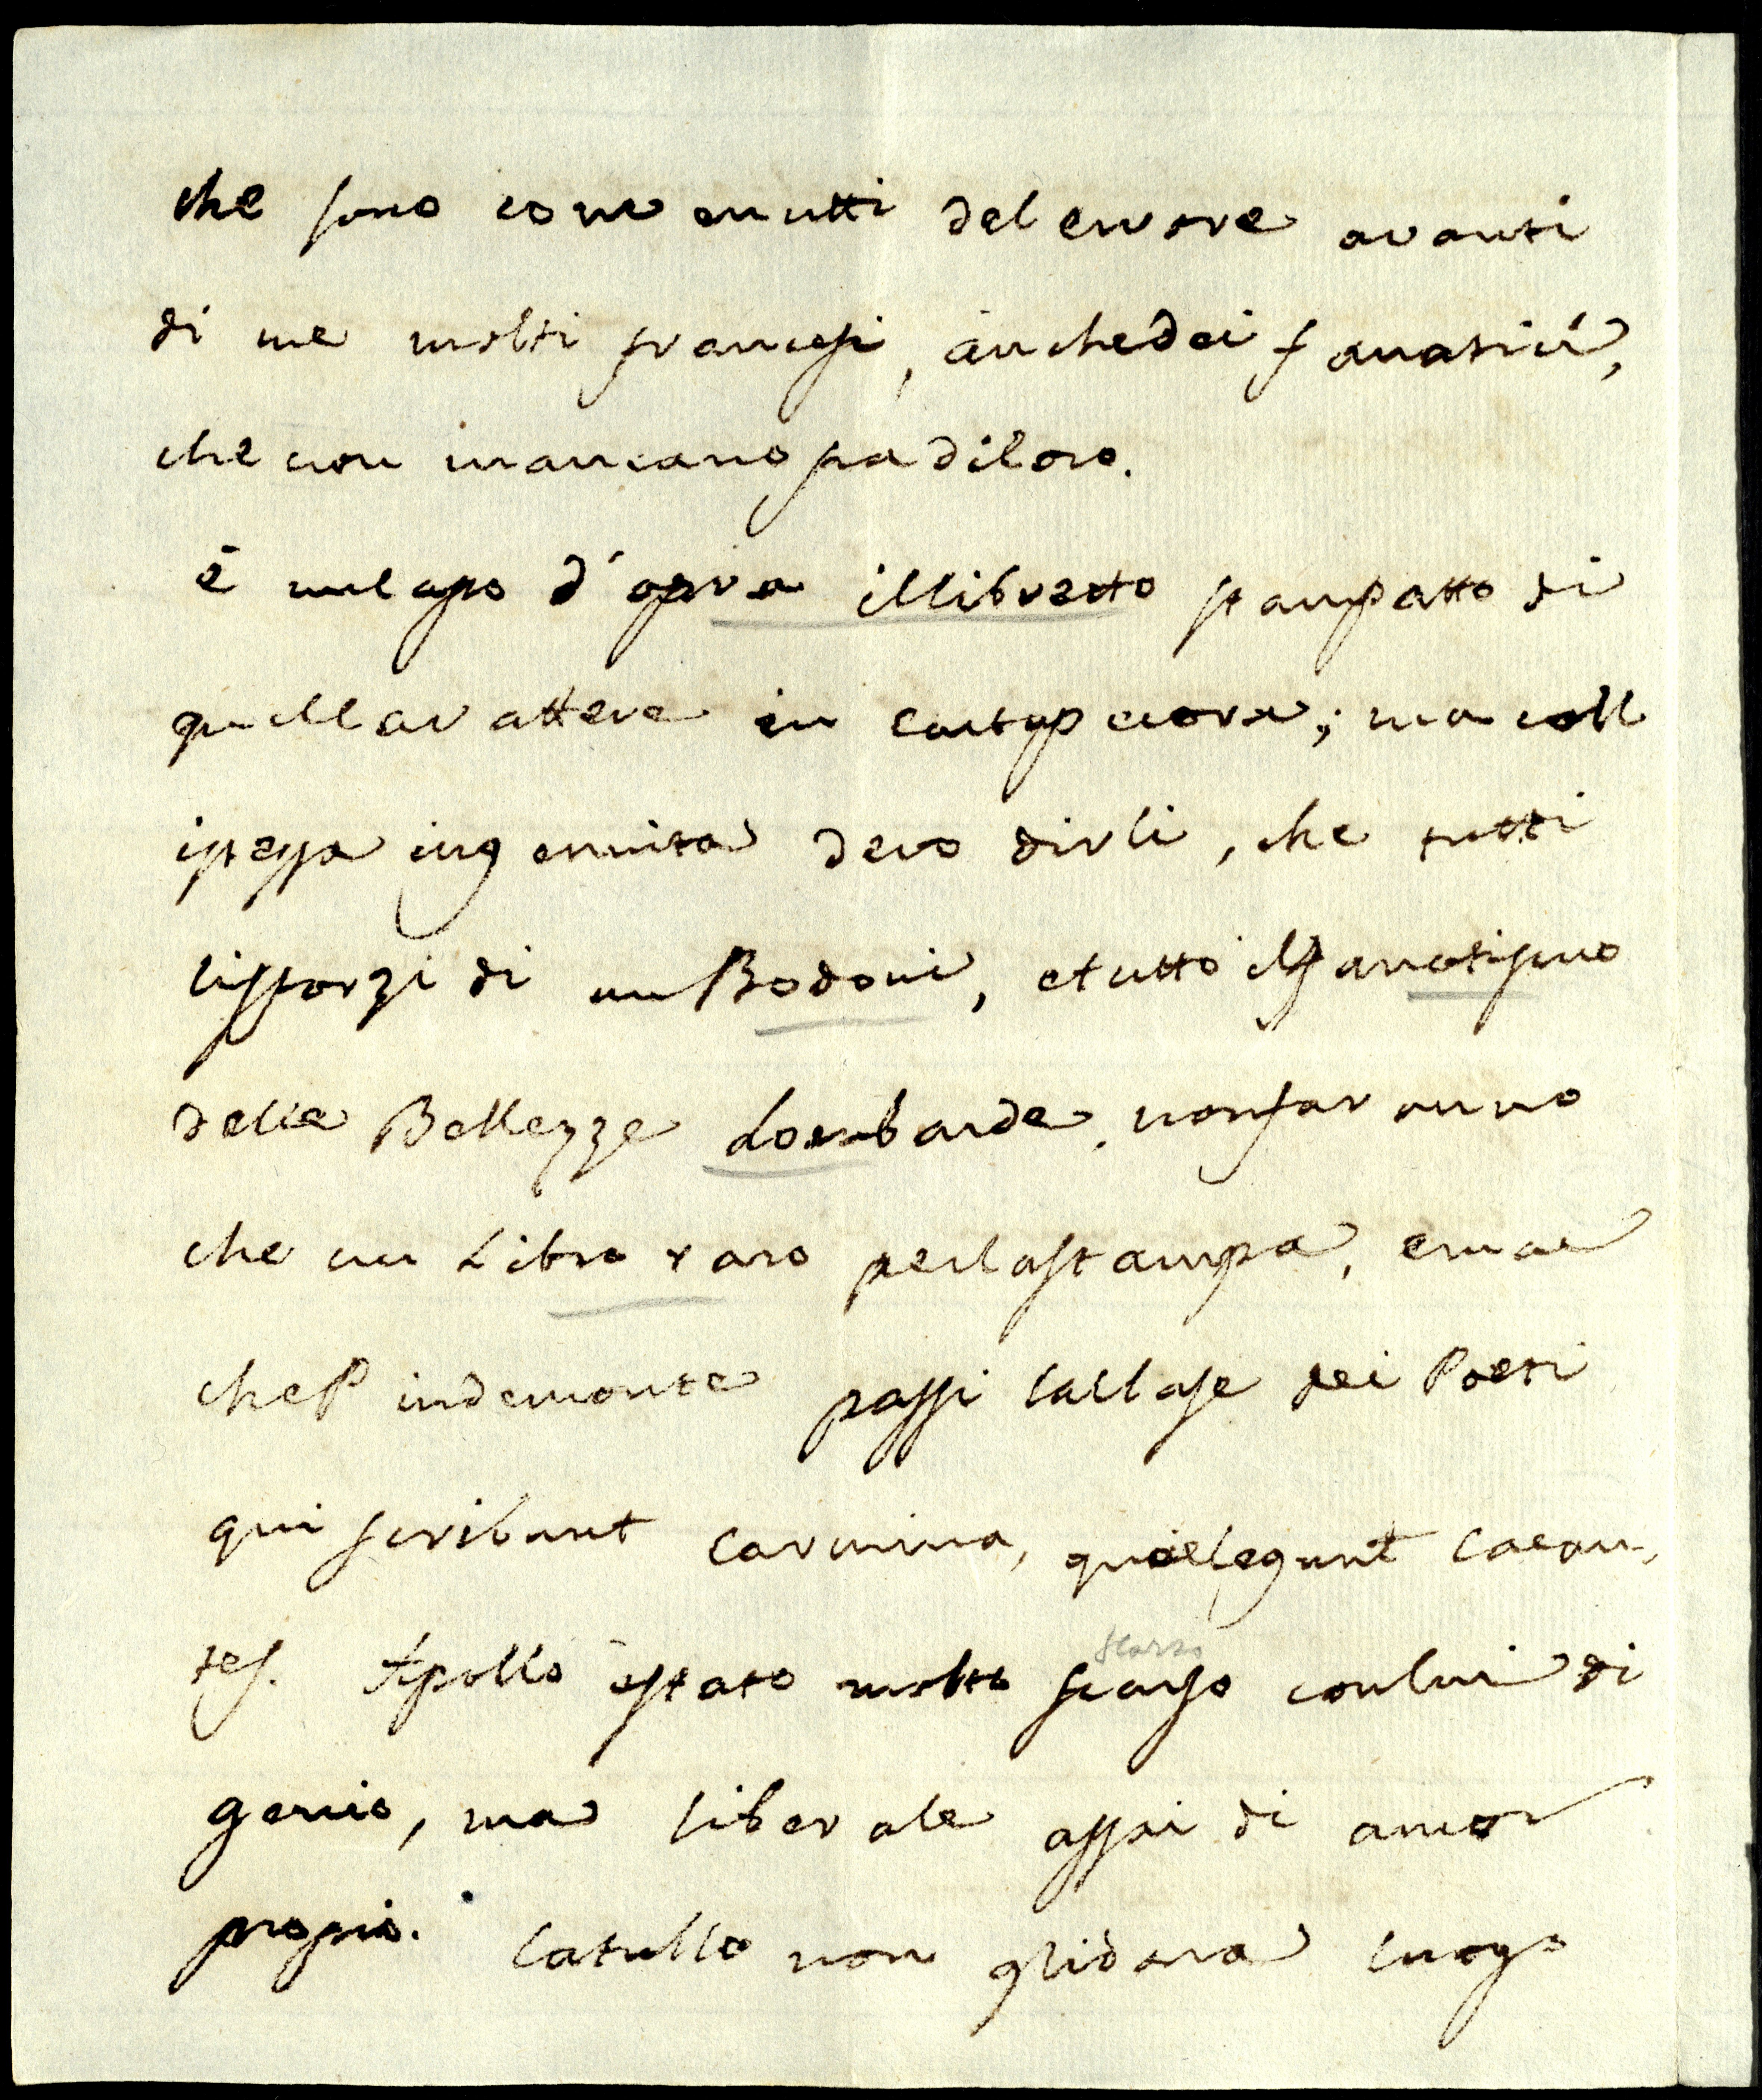 che sono convenutti del errore avanti
di me molti francesi, anche dei fanatici,
che non mancano fra di loro.
è un capo d'opra il libretto stampatto di
quel carattere in carta pecora; ma coll
istessa ingenuità devo dirli, che tutti
li sforzi di un Bodoni, e tutto il fanatismo
delle Bellezze Lombarde, non faranno
che un Libro raro per la stampa, e mai
che Pindemonte passi la classe dei Poeti
qui scribunt carmina, quae legunt cacan,
tes. Apollo è stato molto scarso con lui di
scarso
genio, ma liberale assai di amor
proprio. Catullo non gli darà luogo